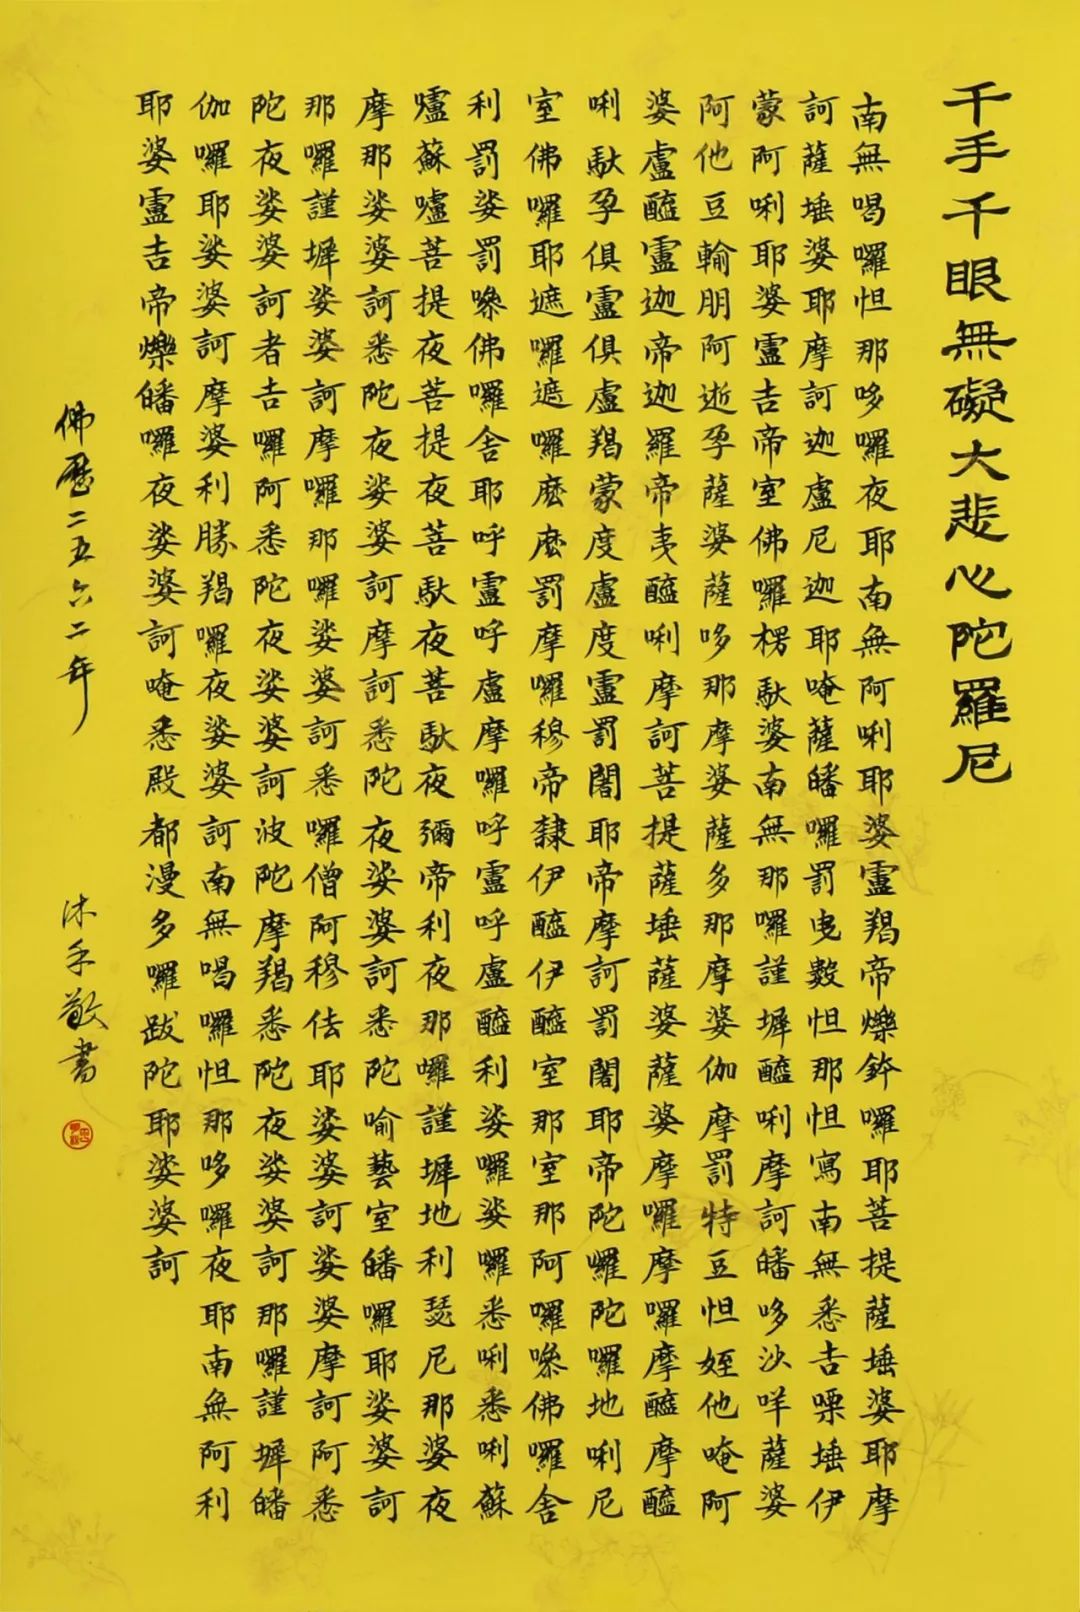 千手千眼無礙大悲心陀羅尼
南無喝囉怛那哆囉夜耶南無阿唎耶婆盧羯帝爍鉢囉耶菩提薩埵婆耶摩
訶薩埵婆耶摩訶迦盧尼迦耶唵薩皤囉罰曳數怛那怛寫南無悉吉嘌埵伊
蒙阿唎耶婆盧吉帝室佛囉楞馱婆南無那囉謹墀醯唎摩訶皤哆沙咩薩婆
阿他豆輸朋阿逝孕薩婆薩哆那摩婆薩多那摩婆伽摩罰特豆怛姪他唵阿
婆盧醯盧迦帝迦羅帝夷醯唎摩訶菩提薩埵薩婆薩婆摩囉摩囉摩醯摩醯
唎馱孕俱盧俱盧羯蒙度盧度盧罰闍耶帝摩訶罰闍耶帝陀囉陀囉地唎尼
室佛囉耶遮囉遮囉麼麼罰摩囉穆帝隸伊醯伊醯室那室那阿囉嘇佛囉舍
利罰娑罰嘇佛囉舍耶呼盧呼盧摩囉呼盧呼盧醯利娑囉娑囉悉唎悉唎蘇
嚧蘇嚧菩提夜菩提夜菩馱夜菩馱夜彌帝利夜那囉謹墀地利瑟尼那婆夜
摩那娑婆訶悉陀夜娑婆訶摩訶悉陀夜娑婆訶悉陀喻藝室皤囉耶娑婆訶
那囉謹墀娑婆訶摩囉那囉娑婆訶悉囉僧阿穆佉耶娑婆訶娑婆摩訶阿悉
陀夜娑婆訶者吉囉阿悉陀夜娑婆訶波陀摩羯悉陀夜娑婆訶那囉謹墀皤
伽囉耶娑婆訶摩婆利勝羯囉夜娑婆訶南無喝囉怛那哆囉夜耶南無阿利
耶婆盧吉帝爍皤囉夜娑婆訶唵悉殿都漫多囉跋陀耶娑婆訶
佛曆二五六二年 沐手敬書